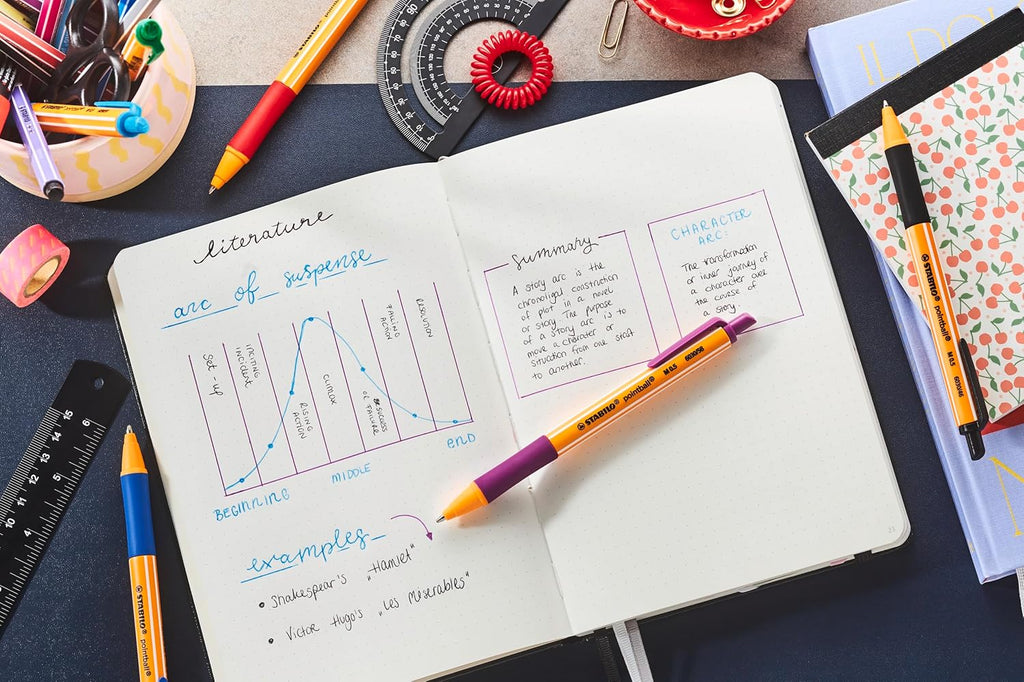 literature
arc of suspense
Set-up
INCITING
INCIDENT
RISING
ACTION
CLIMAX
FALLING
ACTION
RESOLUTION
SUCCESS
FAILURE
BEGINNING
MIDDLE
END
examples
Shakespear's „Hamlet"
Victor Hugo's „Les Miserables"
Summary
A story arc is the
chronoligal construction
of plot in a novel
or story. The purpose
of a story arc is to
move a charater or
situation from one
to another.
CHARACTER
ARC:
The transformation
or inner journey of
a character over
the course of
a story.
STABILO® pointball® M 0.5 6030/58
STABILO® pointball® M 0.5 6030/46
STABILO® pointball®
15
14
13
12
11
10
6
5
4
21